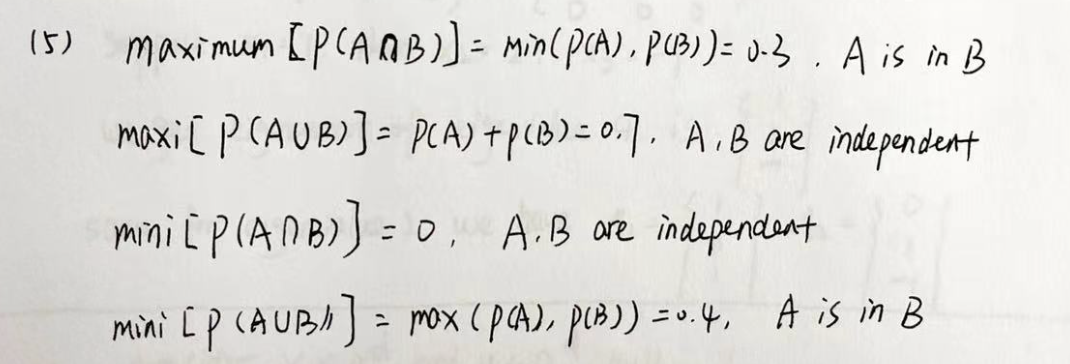 (5) maximum [P(A∩B)] = min(P(A), P(B)) = 0.3. A is in B
maxi [P(A∪B)] = P(A) + P(B) = 0.7. A, B are independent
mini [P(A∩B)] = 0, A.B are independent
mini [P(A∪B)] = max (P(A), P(B)) = 0.4, A is in B